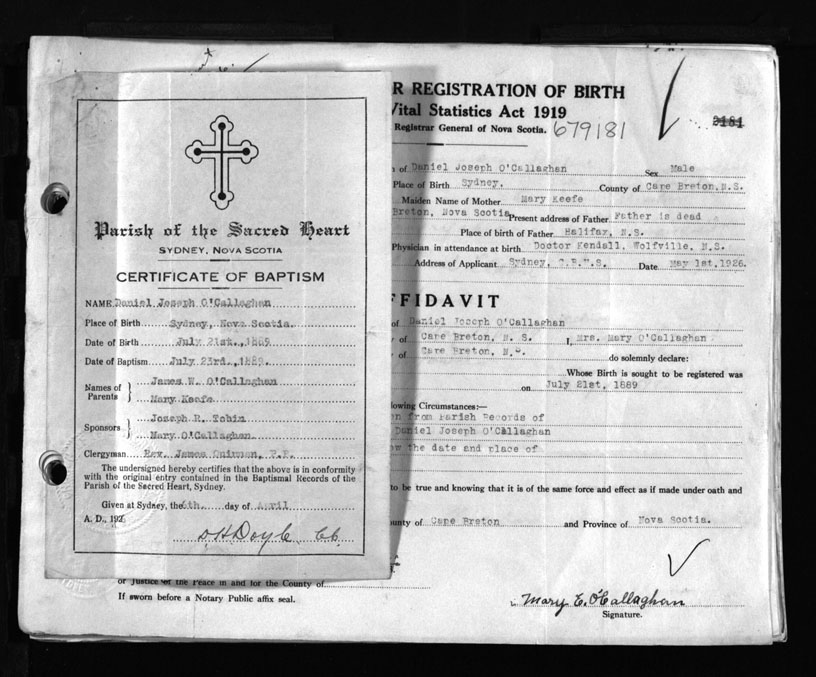 Parish of the Sacred Heart
SYDNEY, NOVA SCOTIA
CERTIFICATE OF BAPTISM
NAME Daniel Joseph O'Callaghan
Place of Birth Sydney, Nova Scotia.
Date of Birth July 21st., 1889
Date of Baptism July 23rd., 1889.
Names of Parents James W. O'Callaghan
Mary Keefe
Sponsors Joseph R. Tobin
Mary O'Callaghan.
Clergyman Rev. James Quinnan, P.P.
The undersigned hereby certifies that the above is in conformity
with the original entry contained in the Baptismal Records of the
Parish of the Sacred Heart, Sydney.
Given at Sydney, the 6th. day of April
A. D., 192
D H Doyle cc.
R REGISTRATION OF BIRTH
Vital Statistics Act 1919
Registrar General of Nova Scotia. 679181
2181
of Daniel Joseph O'Callaghan Sex Male
Place of Birth Sydney, County of Cape Breton, N.S.
Maiden Name of Mother Mary Keefe
Breton, Nova Scotia Present address of Father Father is dead
Place of birth of Father Halifax, N.S.
Physician in attendance at birth Doctor Kendall, Wolfville, N.S.
Address of Applicant Sydney, C.B.N.S. Date May 1st, 1926.
FFIDAVIT
of Daniel Joseph O'Callaghan
of Cape Breton, N. S. I, Mrs. Mary O'Callaghan
of Cape Breton, N.S. do solemnly declare:
Whose Birth is sought to be registered was
on July 21st, 1889
lowing Circumstances:—
en from Parish Records of
Daniel Joseph O'Callaghan
ow the date and place of
to be true and knowing that it is of the same force and effect as if made under oath and
unty of Cape Breton and Province of Nova Scotia.
or Justice of the Peace in and for the County of
If sworn before a Notary Public affix seal.
Mary E. O'Callaghan
Signature.